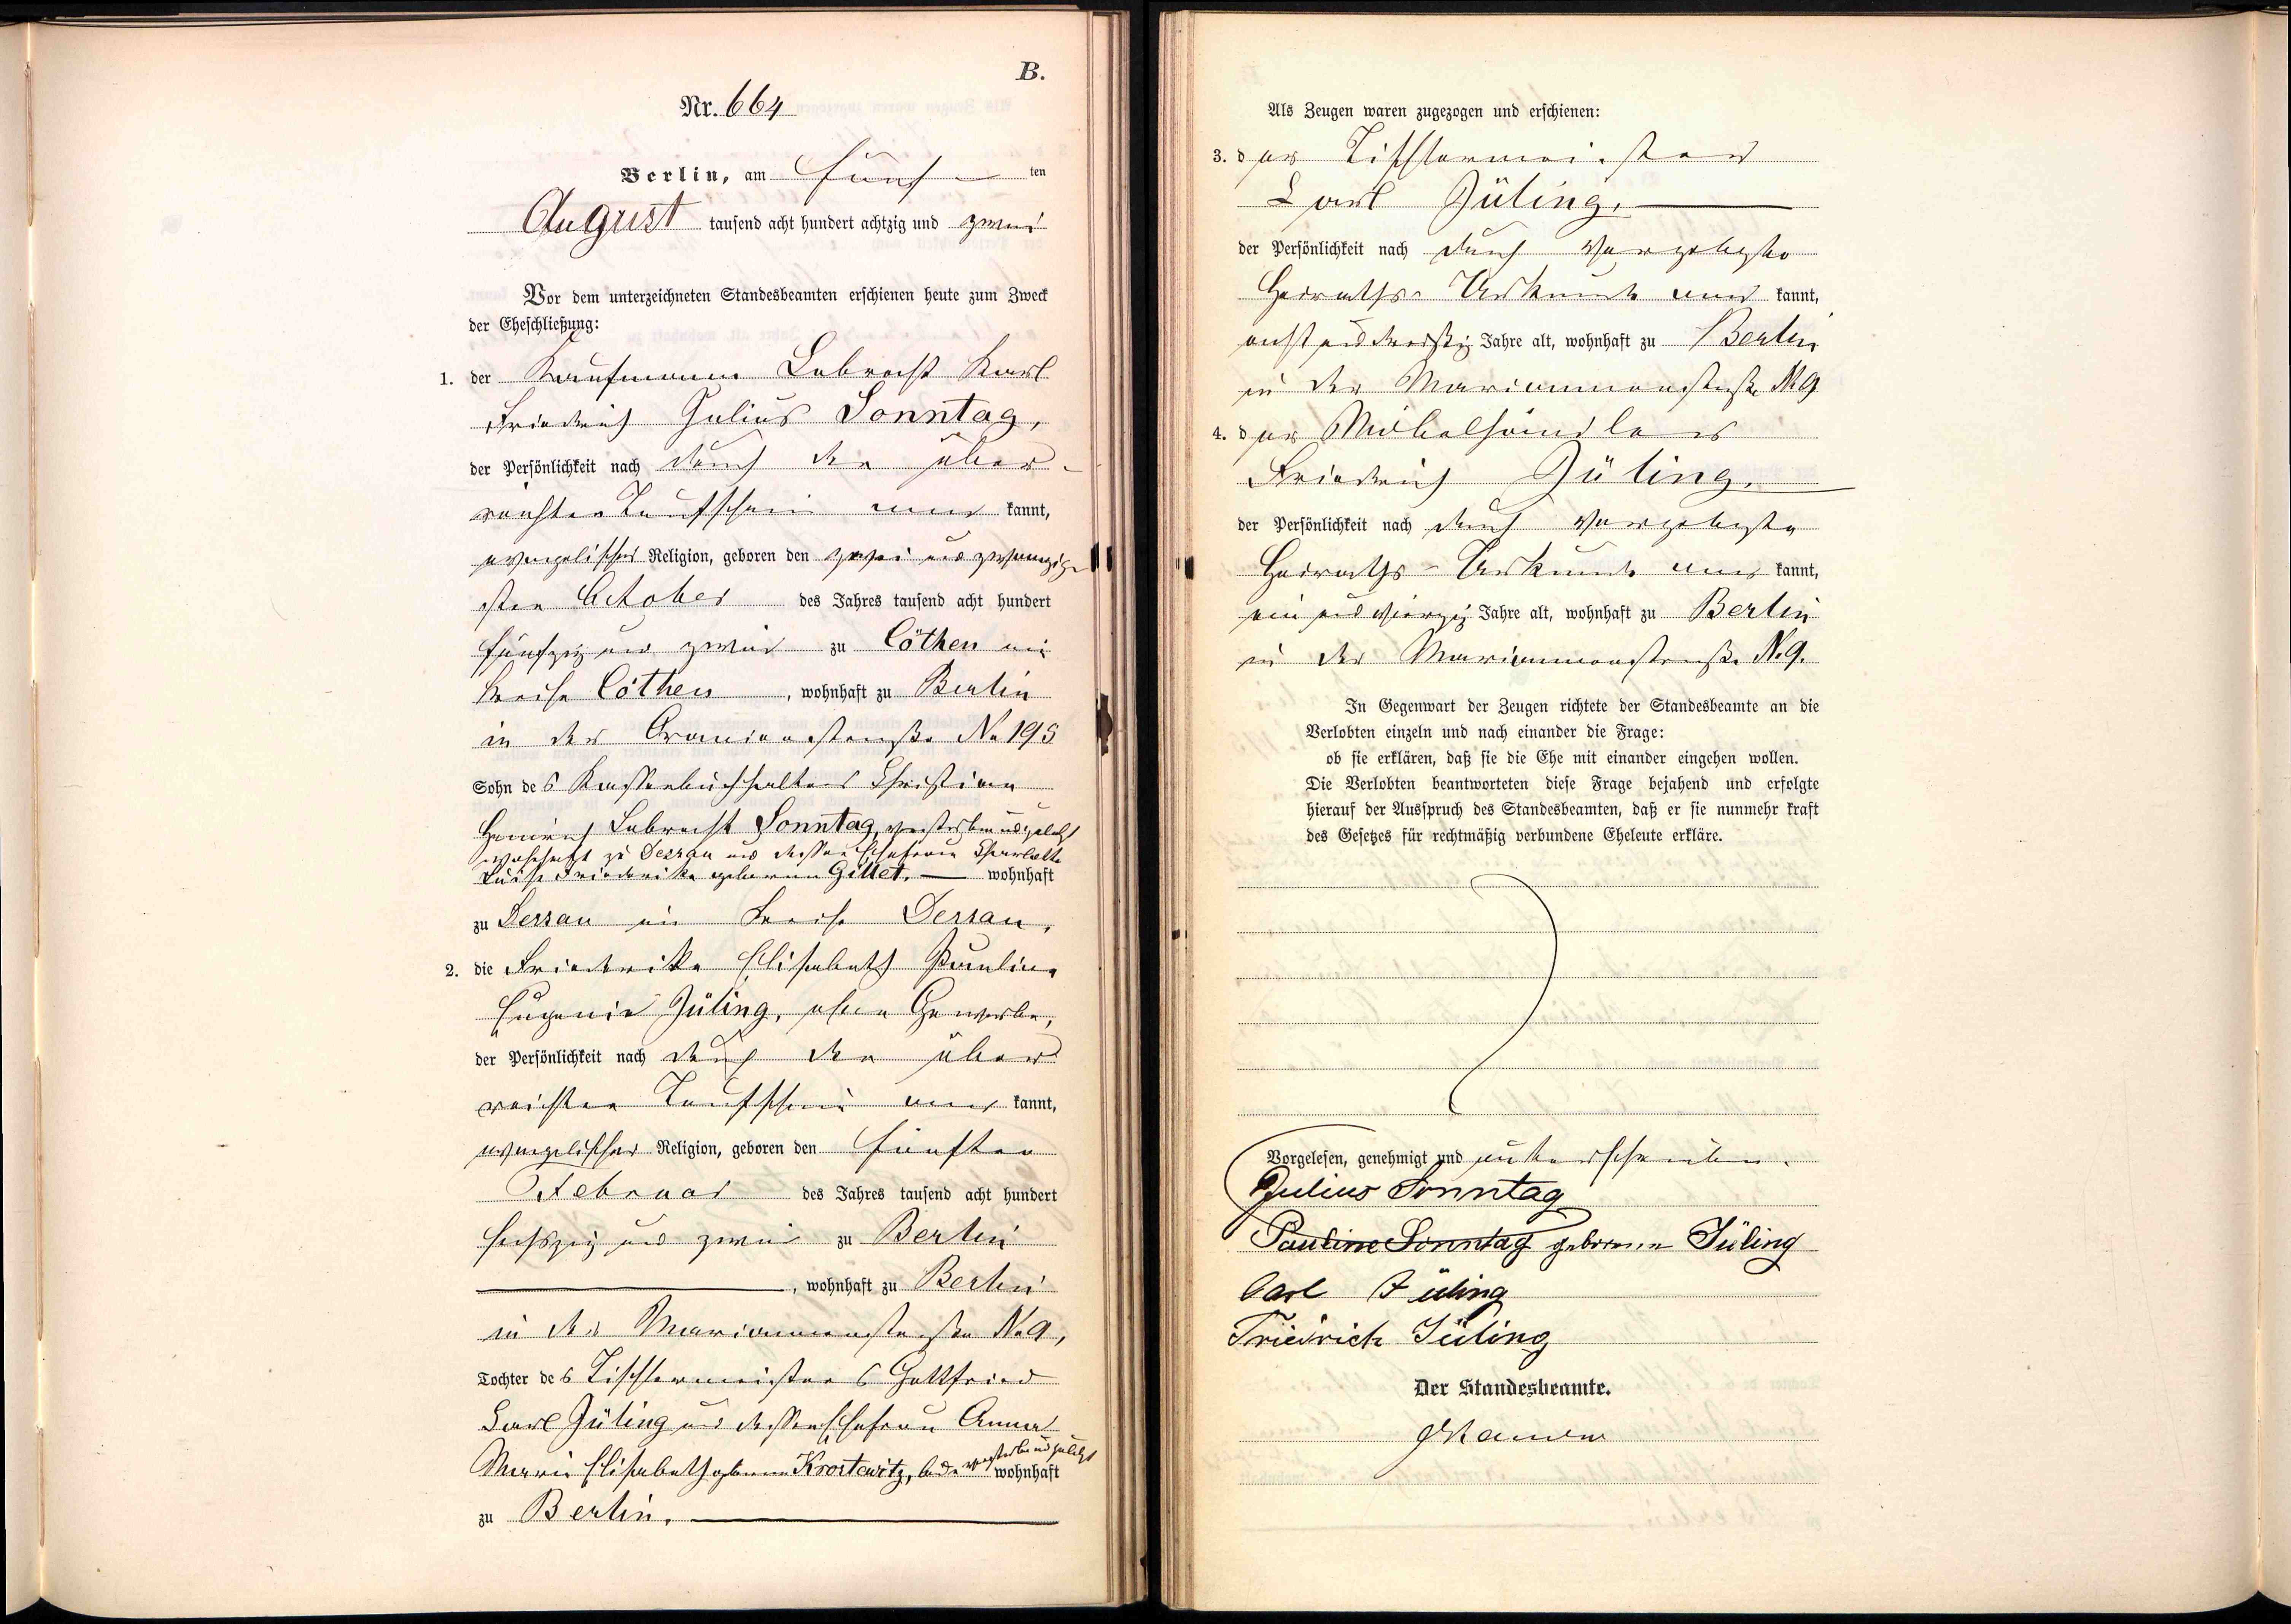 B.
Nr. 664
Berlin, am fünf ten
August tausend acht hundert achtzig und zwei
Vor dem unterzeichneten Standesbeamten erschienen heute zum Zweck
der Eheschließung:
1. der Kaufmann Lebrecht Karl
Friedrich Julius Sonntag,
der Persönlichkeit nach durch den über-
reichten Taufschein aner kannt,
evangelischer Religion, geboren den zwei und zwanzig
sten October des Jahres tausend acht hundert
fünfzig und zwei zu Cöthen im
Kreise Cöthen, wohnhaft zu Berlin
in der Oranienstraße No 195
Sohn des Kassenbuchhalters Christian
Heinrich Lebrecht Sonntag, verstorben und zuletzt
wohnhaft zu Dessau und dessen Ehefrau Charlotte
Luise Friederike geborenen Gillet, wohnhaft
zu Dessau im Kreise Dessau,
2. die Friederike Elisabeth Pauline
Eugenie Jüling, ohne Gewerbe,
der Persönlichkeit nach durch den über
reichten Taufschein aner kannt,
evangelischer Religion, geboren den fünften
Februar des Jahres tausend acht hundert
sechszig und zwei zu Berlin
, wohnhaft zu Berlin
in der Mariannenstraße No 9,
Tochter des Tischlermeisters Gottfried
Carl Jüling und dessen Ehefrau Anna
Marie Elisabeth geborene Krostewitz, beide verstorben und zuletzt wohnhaft
zu Berlin.
Als Zeugen waren zugezogen und erschienen:
3. der Tischlermeister
Carl Jüling,
der Persönlichkeit nach durch vorgelegte
Heiraths-Urkunde aner kannt,
acht und dreißig Jahre alt, wohnhaft zu Berlin
in der Mariannenstraße No 9
4. der Möbelhändler
Friedrich Jüling,
der Persönlichkeit nach durch vorgelegte
Heiraths-Urkunde aner kannt,
ein und vierzig Jahre alt, wohnhaft zu Berlin
in der Mariannenstraße No 9.
In Gegenwart der Zeugen richtete der Standesbeamte an die
Verlobten einzeln und nach einander die Frage:
ob sie erklären, daß sie die Ehe mit einander eingehen wollen.
Die Verlobten beantworteten diese Frage bejahend und erfolgte
hierauf der Ausspruch des Standesbeamten, daß er sie nunmehr kraft
des Gesetzes für rechtmäßig verbundene Eheleute erkläre.
Vorgelesen, genehmigt und unterschrieben.
Julius Sonntag
Pauline Sonntag geborene Jüling
Carl Jüling
Friedrich Jüling
Der Standesbeamte.